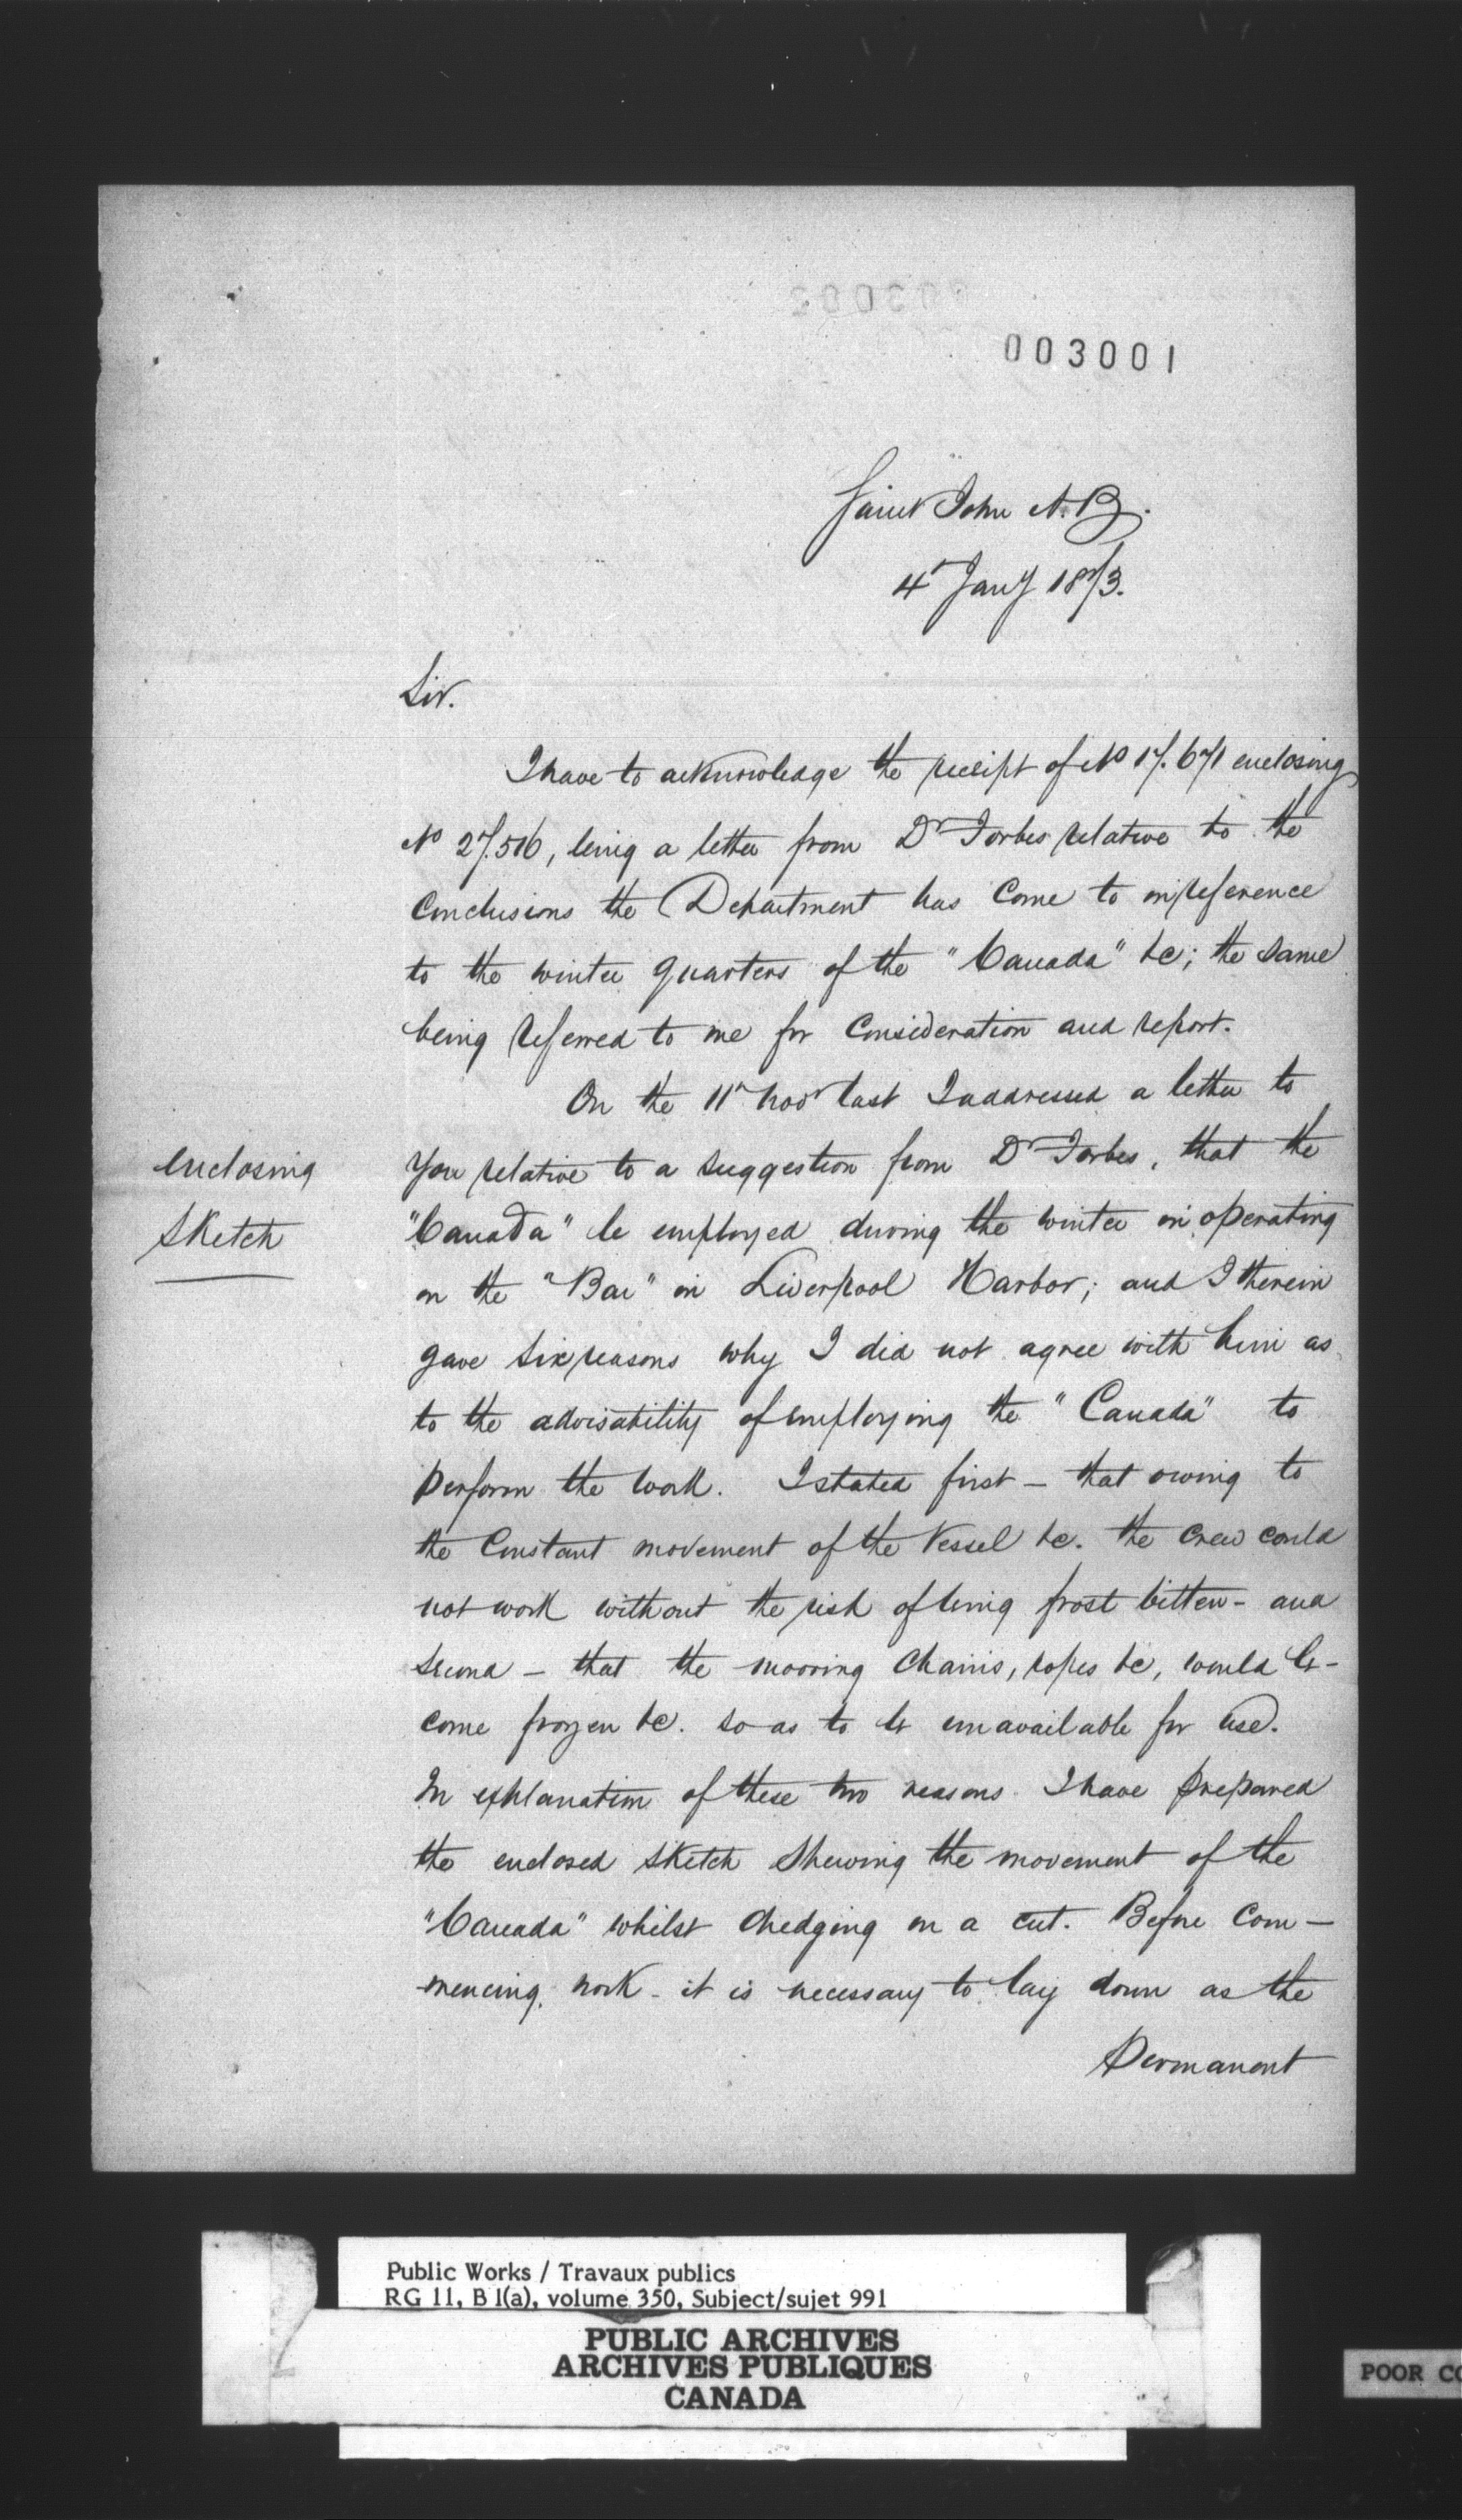 003001
Saint John N.B.
4th Jany 1873.
Sir.
I have to acknowledge the receipt of No 17.671 enclosing
No 27.516, being a letter from Dr Forbes relative to the
Conclusions the Department has Come to in reference
to the winter Quarters of the "Canada" &c; the same
being referred to me for Consideration and report.
On the 11th Novr last I addressed a letter to
enclosing
You relative to a suggestion from Dr Forbes, that the
Sketch
"Canada" be employed during the winter in operating
on the "Bar" in Liverpool Harbor; and I therein
gave six reasons why I did not agree with him as
to the advisability of employing the "Canada" to
perform the work. I stated first — that owing to
the Constant movement of the Vessel &c. the crew could
not work without the risk of being frost bitten - and
second — that the mooring Chains, ropes &c, would be-
come frozen &c. so as to be unavailable for use.
In explanation of these two reasons I have prepared
the enclosed sketch Shewing the movement of the
"Canada" whilst dredging on a cut. Before Com—
mencing work - it is necessary to lay down as the
Permanent
Public Works / Travaux publics
RG 11, B 1(a), volume 350, Subject/sujet 991
PUBLIC ARCHIVES
ARCHIVES PUBLIQUES
CANADA
POOR CO